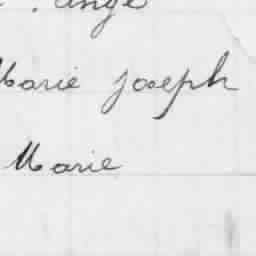 ange
Marie joseph
Marie